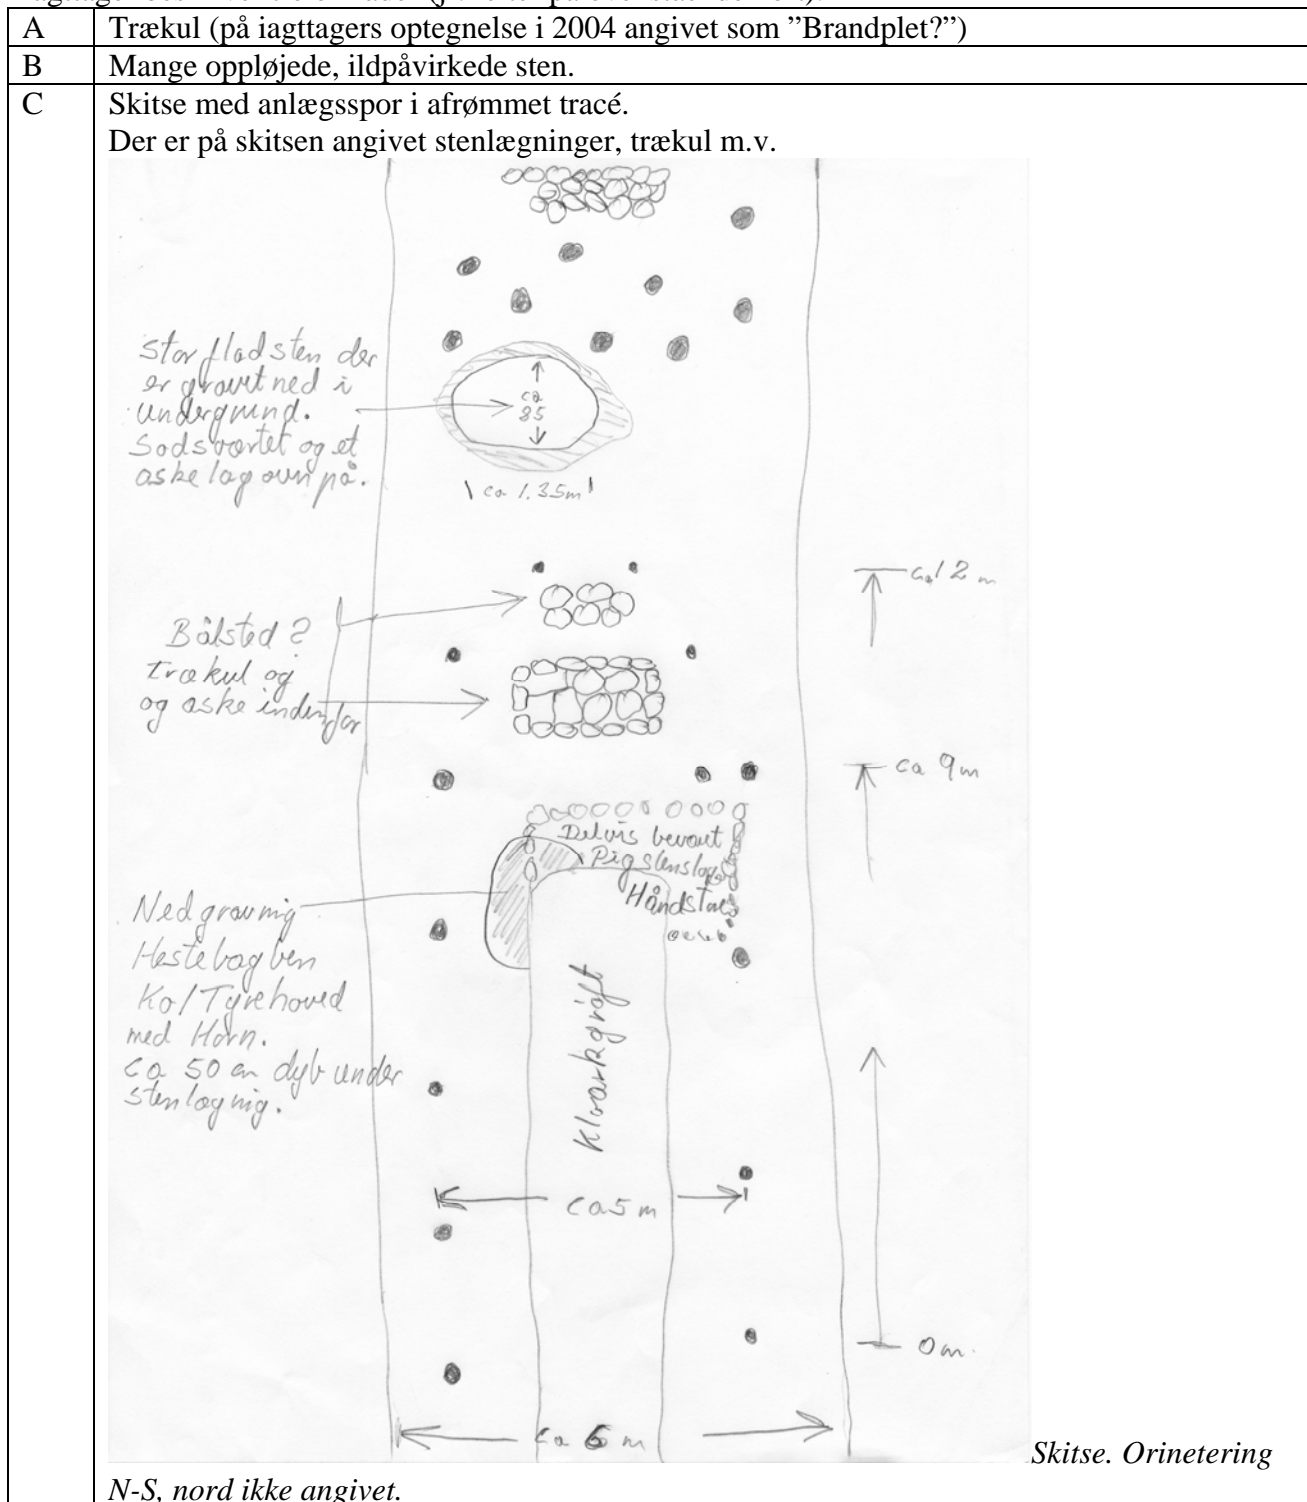 A Trækul (på iagttagers optegnelse i 2004 angivet som ”Brandplet?”)
B Mange oppløjede, ildpåvirkede sten.
C Skitse med anlægsspor i afrømmet tracé.
Der er på skitsen angivet stenlægninger, trækul m.v.
Stor flad sten der
er gravet ned i
undergrund.
Sodsværtet og et
aske lag ovn på.
ca
85
ca 1.35m
ca 12 m
Bålsted?
trækul og
og aske indenfor
ca 9m
Delvis bevaret
Håndstore
Nedgravnig
Hestebagben
Ko/Tyrehoved
med Horn.
ca 50 cm dyb under
stenlægnig.
Kloarkgrøft
ca 5 m
0 m.
ca 6 m
Skitse. Orinetering
N-S, nord ikke angivet.